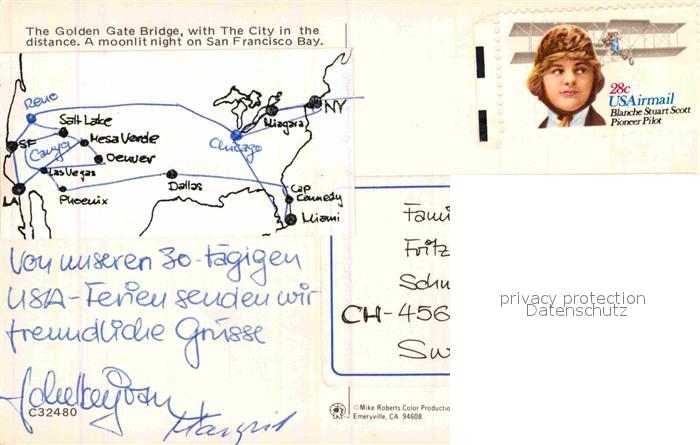 The Golden Gate Bridge, with The City in the
distance. A moonlit night on San Francisco Bay.
28c
USAirmail
Blanche Stuart Scott
Pioneer Pilot
Reno
Salt Lake
Mesa Verde
SF
Canyon
Denver
Las Vegas
LA
Phoenix
Dallas
Chicago
Niagara
NY
Cap
Kennedy
Miami
Von unseren 30-tägigen
USA-Ferien senden wir
freundliche Grüsse
Margrit
Fami
Fritz
Schu
CH-456
Sw
privacy protection
Datenschutz
C32480
©Mike Roberts Color Productio
Emeryville, CA 94608